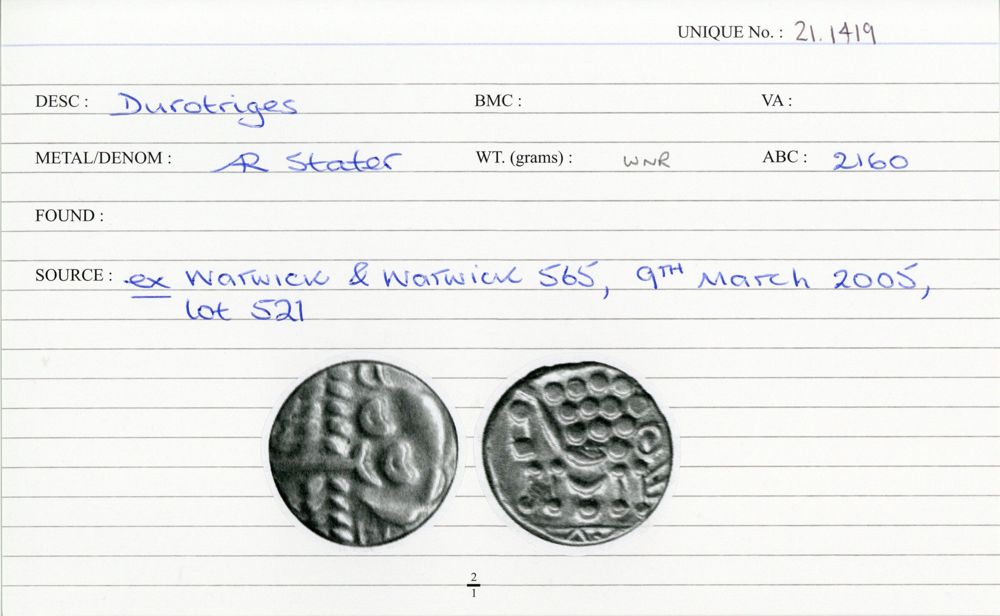 UNIQUE No. : 21.1419
DESC : Durotriges BMC : VA :
METAL/DENOM : AR Stater WT. (grams) : WNR ABC : 2160
FOUND :
SOURCE : ex Warwick & Warwick 565, 9TH March 2005,
lot 521
2
1